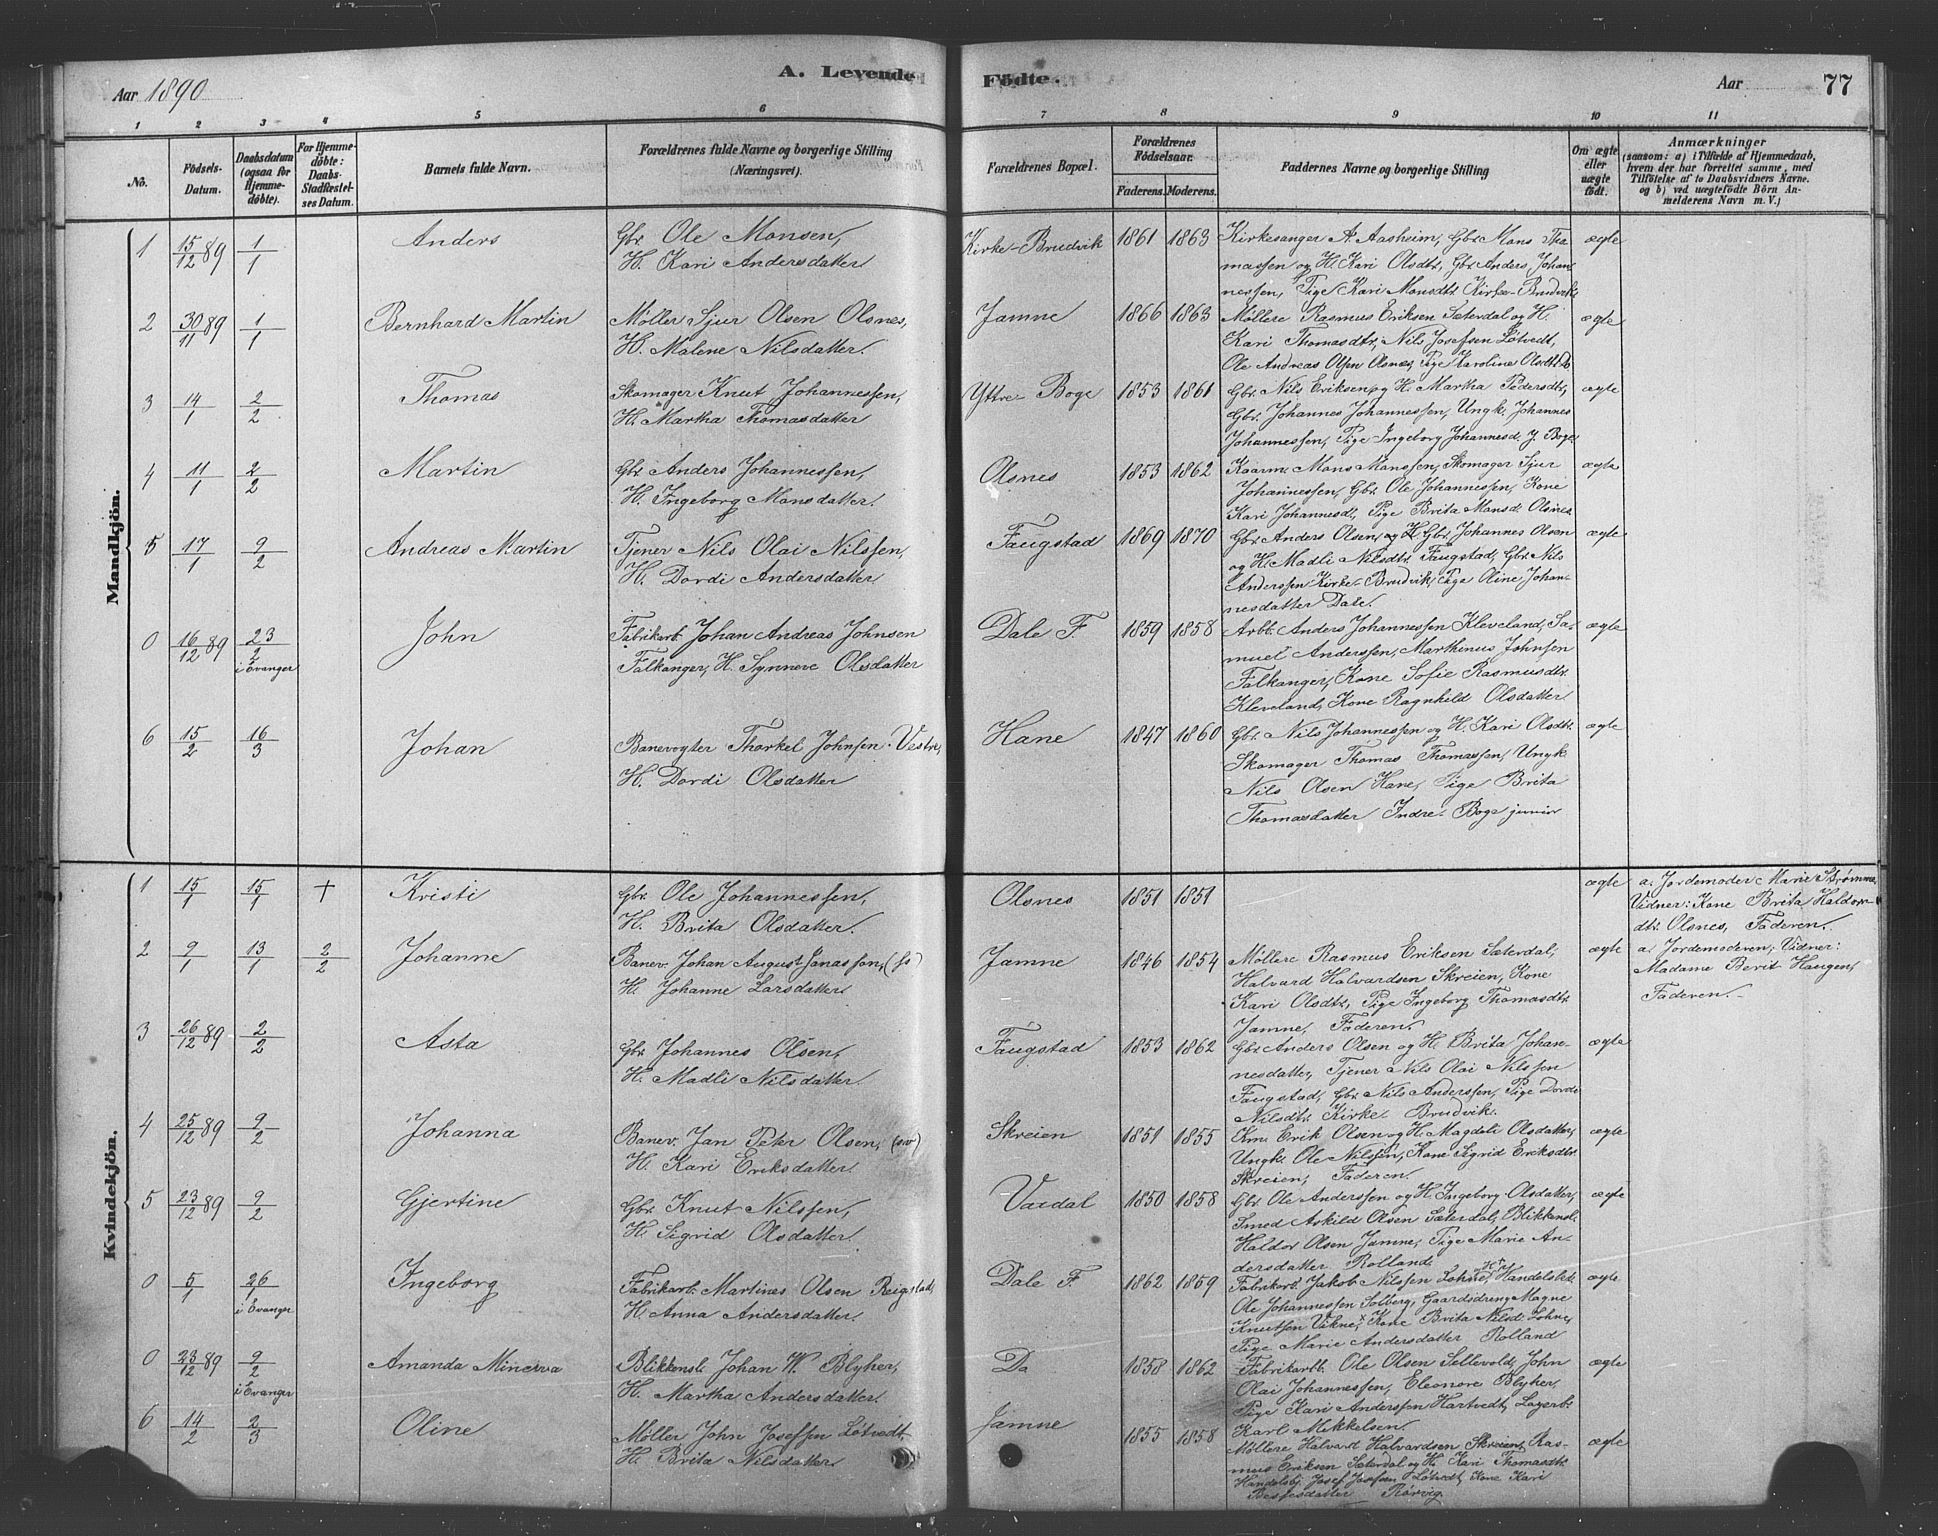 A. Levende Födte.
Aar 1890
Aar 77
1 2 3 4 5 6 7 8 9 10 11
No.
Födsels-
Datum.
Daabsdatum
(ogsaa for
Hjemme-
döbte).
For Hjemme-
döbte:
Daabs-
Stadfæstel-
ses Datum.
Barnets fulde Navn.
Forældrenes fulde Navne og borgerlige Stilling
(Næringsvei).
Forældrenes Bopæl.
Forældrenes
Födselsaar.
Faderens. Moderens.
Faddernes Navne og borgerlige Stilling
Om ægte
eller
uægte
födt.
Anmærkninger
(saasom: a) i Tilfælde af Hjemmedaab,
hvem der har forrettet samme, med
Tilföielse af to Daabsvidners Navne.
og b) ved uægtefödte Börn An-
melderens Navn m. V.)
Mandkjön.
1 15/12 89 1/1 Anders Gbr. Ole Monsen, Kirke-Brudvik 1861 1863 Kirkesanger A. Aasheim, Gbr. Mons Tho- ægte
H. Kari Andersdatter massen og H. Kari Olsdtr, Gbr. Anders Johan-
nessen, Pige Kari Monsdtr. Kirke-Brudvik
2 30/11 89 1/1 Bernhard Martin Møller Sjur Olsen Olsnes, Jamne 1866 1863 Møllere Rasmus Eriksen Sæterdal og H. ægte
H. Malene Nilsdatter. Kari Thomasdtr, Nils Josefsen Løtvedt,
Ole Andreas Olsen Olsnes, Pige Karoline Olsdtr
3 14/1 2/2 Thomas Skomager Knut Johannessen, Yttre-Boge 1853 1861 Gbr. Nils Eriksen og H. Martha Pedersdtr, ægte
H. Martha Thomasdatter Gbr. Johannes Johannessen, Ungk. Johannes
Johannessen, Pige Ingeborg Johannesd. Y. Boge
4 11/1 2/2 Martin Gbr. Anders Johannessen, Olsnes 1853 1862 Kaarm. Mons Monssen, Skomager Sjur ægte
H. Ingeborg Monsdatter. Johannessen, Gbr. Ole Johannessen, Kone
Kari Johannesdt, Pige Brita Monsd. Olsnes
5 17/1 9/2 Andreas Martin Tjener Nils Olai Nilssen, Faugstad 1869 1870 Gbr. Anders Olsen, og H. Gbr. Johannes Olsen ægte
H. Dordi Andersdatter og H. Madli Nilsdtr. Faugstad, Gbr. Nils
Anderssen Kirke-Brudvik, Pige Oline Johan-
nesdatter Dale.
0 16/12 89 23/2 i Evanger John Fabrikarb. Johan Andreas Johnsen Dale F. 1859 1858 Arbb. Anders Johannessen Kleveland, Sa- ægte
Falkanger, H. Synneve Olsdatter muel Anderssen, Marthinus Johnsen
Falkanger, Kone Sofie Rasmusdtr.
Kleveland, Kone Ragnhild Olsdatter
6 15/2 16/3 Johan Banevogter Thorkel Johnsen Vestre, Hane 1847 1860 Gbr. Nils Johannessen og H. Kari Olsdtr. ægte
H. Dordi Olsdatter Skomager Thomas Thomassen, Ungk.
Nils Olsen Hane, Pige Brita
Thomasdatter Indre-Boge junior
Kvindekjön.
1 15/1 15/1 † Kristi Gbr. Ole Johannessen, Olsnes 1851 1851 ægte a. Jordemoder Marie Strømme,
H. Brita Olsdatter. Vidner: Kone Brita Haldors-
dtr. Olsnes, Faderen.
2 9/1 13/1 2/2 Johanne Banev. Johan August Jonassen, (fs) Jamne 1846 1854 Møllere Rasmus Eriksen Sæterdal, ægte a. Jordemoderen; Vidner:
H. Johanne Larsdatter. Halvard Halvardsen Skreien, Kone Madame Berit Haugen,
Kari Olsdtr, Pige Ingeborg Thomasdtr Faderen.
Jamne, Faderen.
3 26/12 89 2/2 Asta Gbr. Johannes Olsen, Faugstad 1853 1862 Gbr. Anders Olsen og H. Brita Johan- ægte
H. Madli Nilsdatter. nesdatter, Tjener Nils Olai Nilssen
Faugstad, Gbr. Nils Anderssen, Pige Dordi
Nilsdtr. Kirke Brudvik.
4 25/12 89 9/2 Johanna Banev. Jan Peter Olsen, (sv) Skreien 1851 1855 Km. Erik Olsen og H. Magdeli Olsdatter, ægte
H. Kari Eriksdatter. Ungk. Ole Nilssen, Kone Sigrid Eriksdtr.
Skreien, Faderen.
5 23/12 89 9/2 Gjertine Gbr. Knut Nilssen, Vardal 1850 1858 Gbr. Ole Anderssen og H. Ingeborg Olsdatter, ægte
H. Sigrid Olsdatter. Smed Askild Olsen Sæterdal, Blikkensl.
Haldor Olsen Jamne, Pige Marie An-
dersdatter Rolland.
0 5/1 26/1 i Evanger Ingeborg Fabrikarb. Martines Olsen Reigstad, Dale F. 1862 1859 Fabrikarb. Jakob Nilssen Lohne, Handelsbet. ægte
H. Anna Andersdatter. Ole Johannessen Solberg, Gaardsdreng Magne
Knutsen Vikne, Kone Brita Nilsd. Lohne,
Pige Marie Andersdatter Rolland
0 23/12 89 9/2 i Evanger Amanda Minerva Blikkensl. Johan W. Blyher, Do 1858 1862 Fabrikarbb. Ole Olsen Sellevold, John ægte
H. Martha Andersdatter. Olai Johannessen, Eleonore Blyher,
Pige Kari Anderssen Hartvedt, Lagerb.
Karl Mikkelsen.
6 14/2 2/3 Oline Møller John Josefsen Løtvedt Jamne 1855 1858 Møllere Halvard Halvardsen Skreien, Ras- ægte
H. Brita Nilsdatter. mus Eriksen Sæterdal og H. Kari Thomasdtr.
Handelsbj. Josef Josefsen Løtvedt, Kone Kari
Rørvig